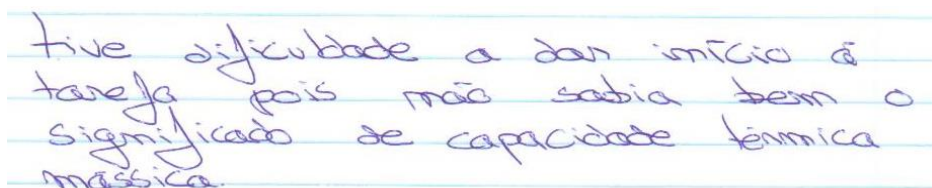 tive dificuldade a dar início á
tarefa pois não sabia bem o
significado de capacidade térmica
mássica.